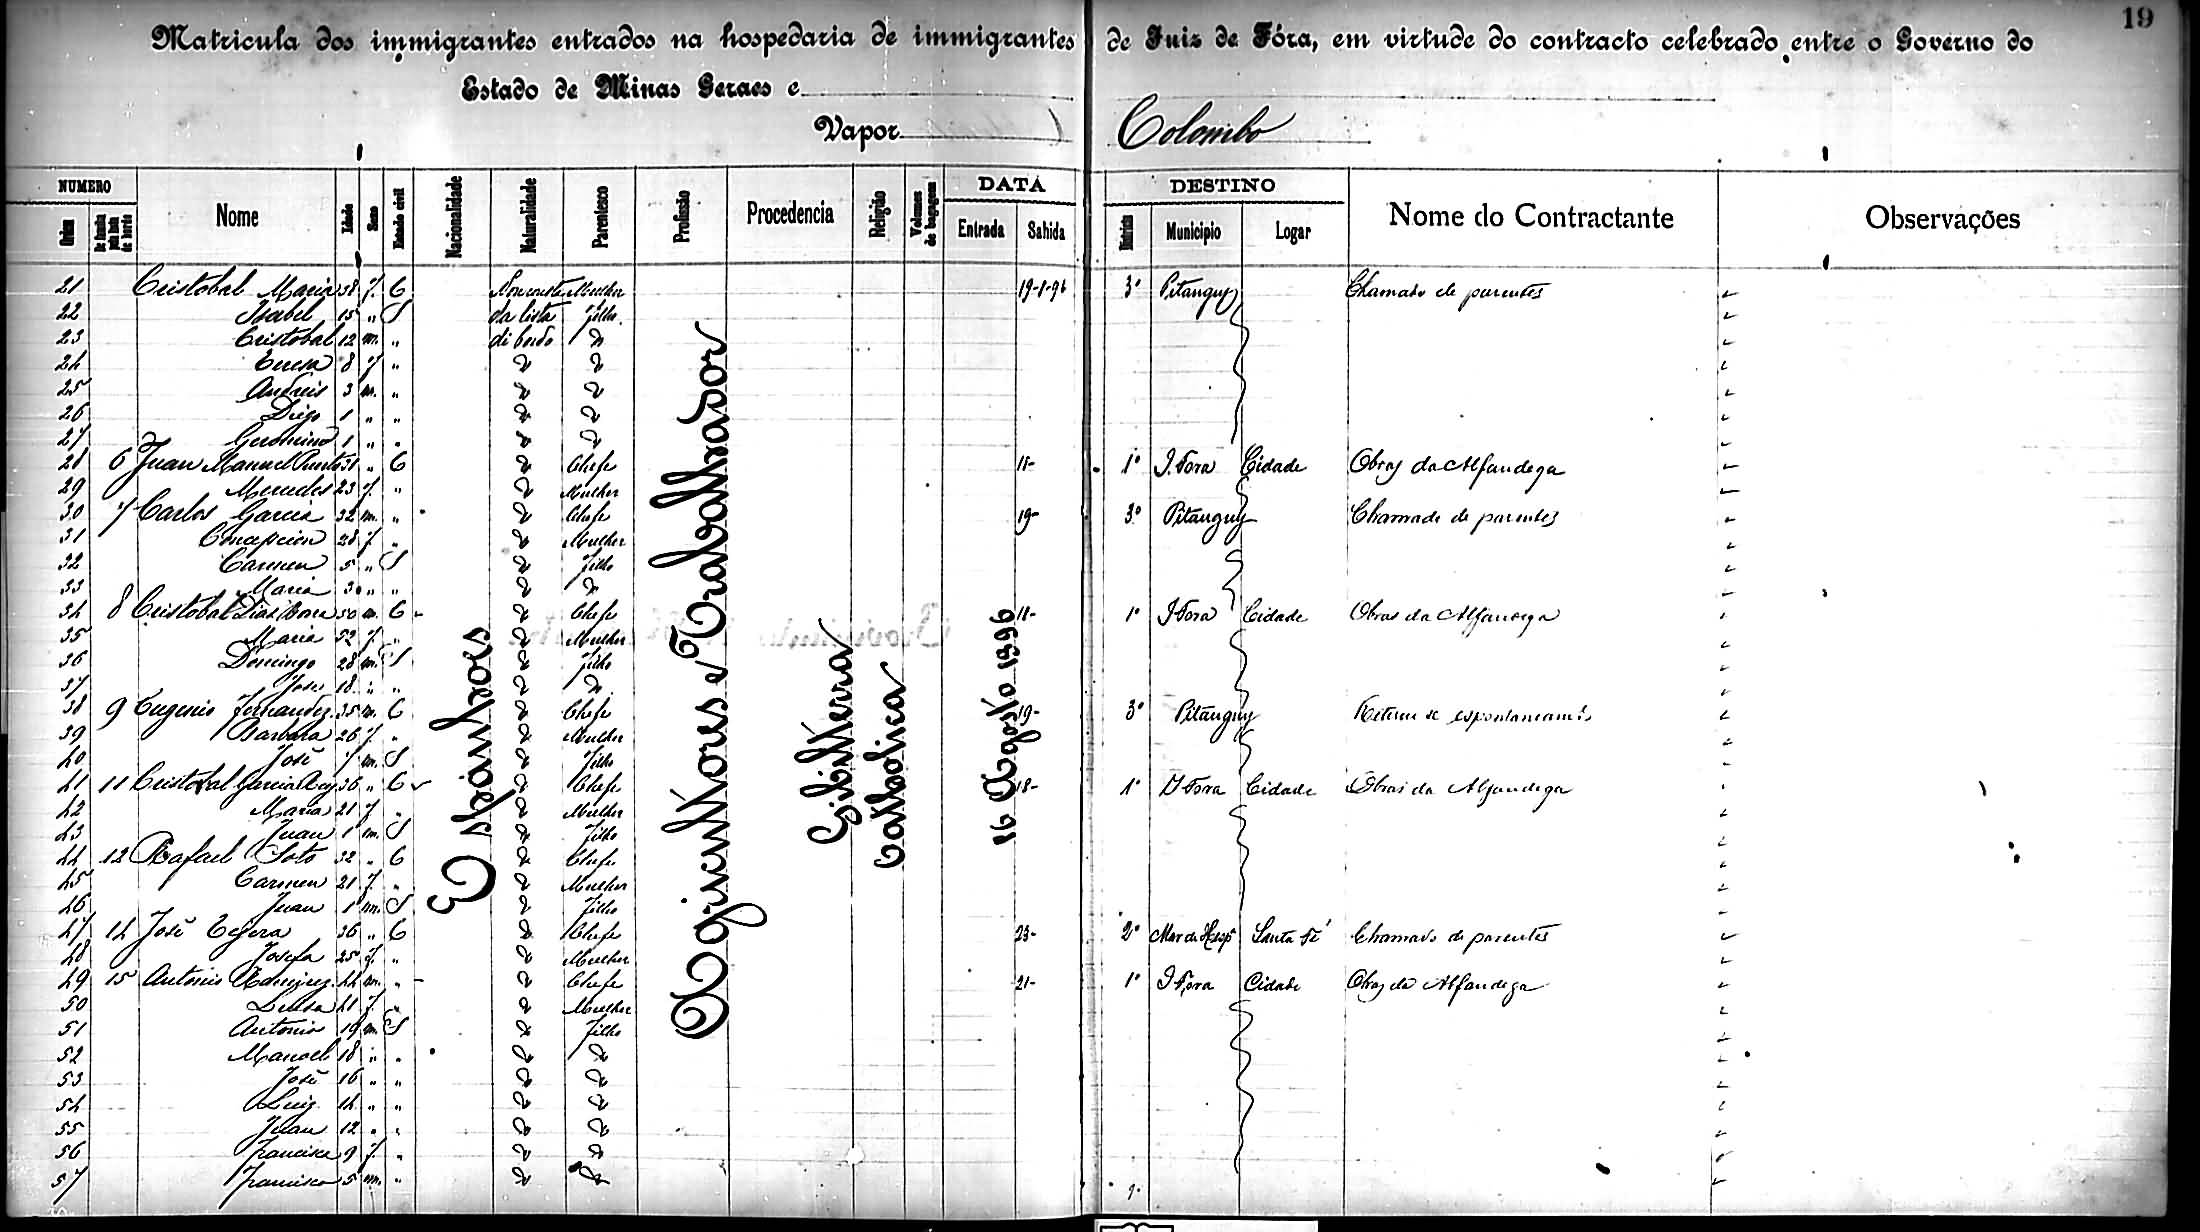 19
Matricula dos immigrantes entrados na hospedaria de immigrantes de Juiz de Fóra, em virtude do contracto celebrado entre o Governo do
Estado de Minas Geraes e
Vapor Colombo
NUMERO DATA DESTINO
Ordem Nome Idade Sexo Estado civil Nacionalidade Naturalidade Parentesco Profissão Procedencia Religião Volumes de bagagem Entrada Sahida Districto Municipio Logar Nome do Contractante Observações
Espanhoes
Agricultores e Trabalhador
Gibilterra
Catholica
16 Agosto 1896
21 Cristobal Maria 38 f. C Non consta Mulher 19-8-96 3º Pitanguy Chamado de parentes
22 Isabel 15 " S da lista filho
23 Cristobal 12 m. " di bordo "
24 8 f "
25 Andreis 3 m. "
26 Diego 1 " "
27 Geronimo 1 " "
28 6 Juan Manuel 31 " C Chefe 18- 1º J. Fora Cidade Obras da Alfandega
29 Mercedes 23 f. " Mulher
30 7 Carlos Garcia 32 m. " Chefe 19- 3º Pitanguy Chamado de parentes
31 Concepcion 28 f. " Mulher
32 Carmen 5 " S filho
33 Maria 3 " "
34 8 Cristobal Dias 50 m. C Chefe 18- 1º J. Fora Cidade Obras da Alfandega
35 Maria 52 f. " Mulher
36 Domingo 28 m. S filho
37 Jose 18 " "
38 9 Eugenio Fernandez 35 m. C Chefe 19- 3º Pitanguy Retirou se espontaneamte
39 Barbara 26 f. " Mulher
40 José 7 m. S filho
41 11 Cristobal Garcia 36 " C Chefe 18- 1º J. Fora Cidade Obras da Alfandega
42 Maria 21 f " Mulher
43 Juan 1 m. S filho
44 12 Rafael Soto 32 " C Chefe
45 Carmen 21 f. " Mulher
46 Juan 1 m. S filho
47 14 José Tejera 36 " C Chefe 23- 2º Mar de Hesp Santa Fé Chamado de parentes
48 Josefa 25 f. " Mulher
49 15 Antonio Ramirez 44 m. " Chefe 21- 1º J. Fora Cidade Obras da Alfandega
50 Luisa 41 f. " Mulher
51 Antonio 19 m S filho
52 Manoel 18 " "
53 José 16 " "
54 Luiz 14 " "
55 Juan 12 " "
56 Francisca 9 f. "
57 Francisco 5 m. "